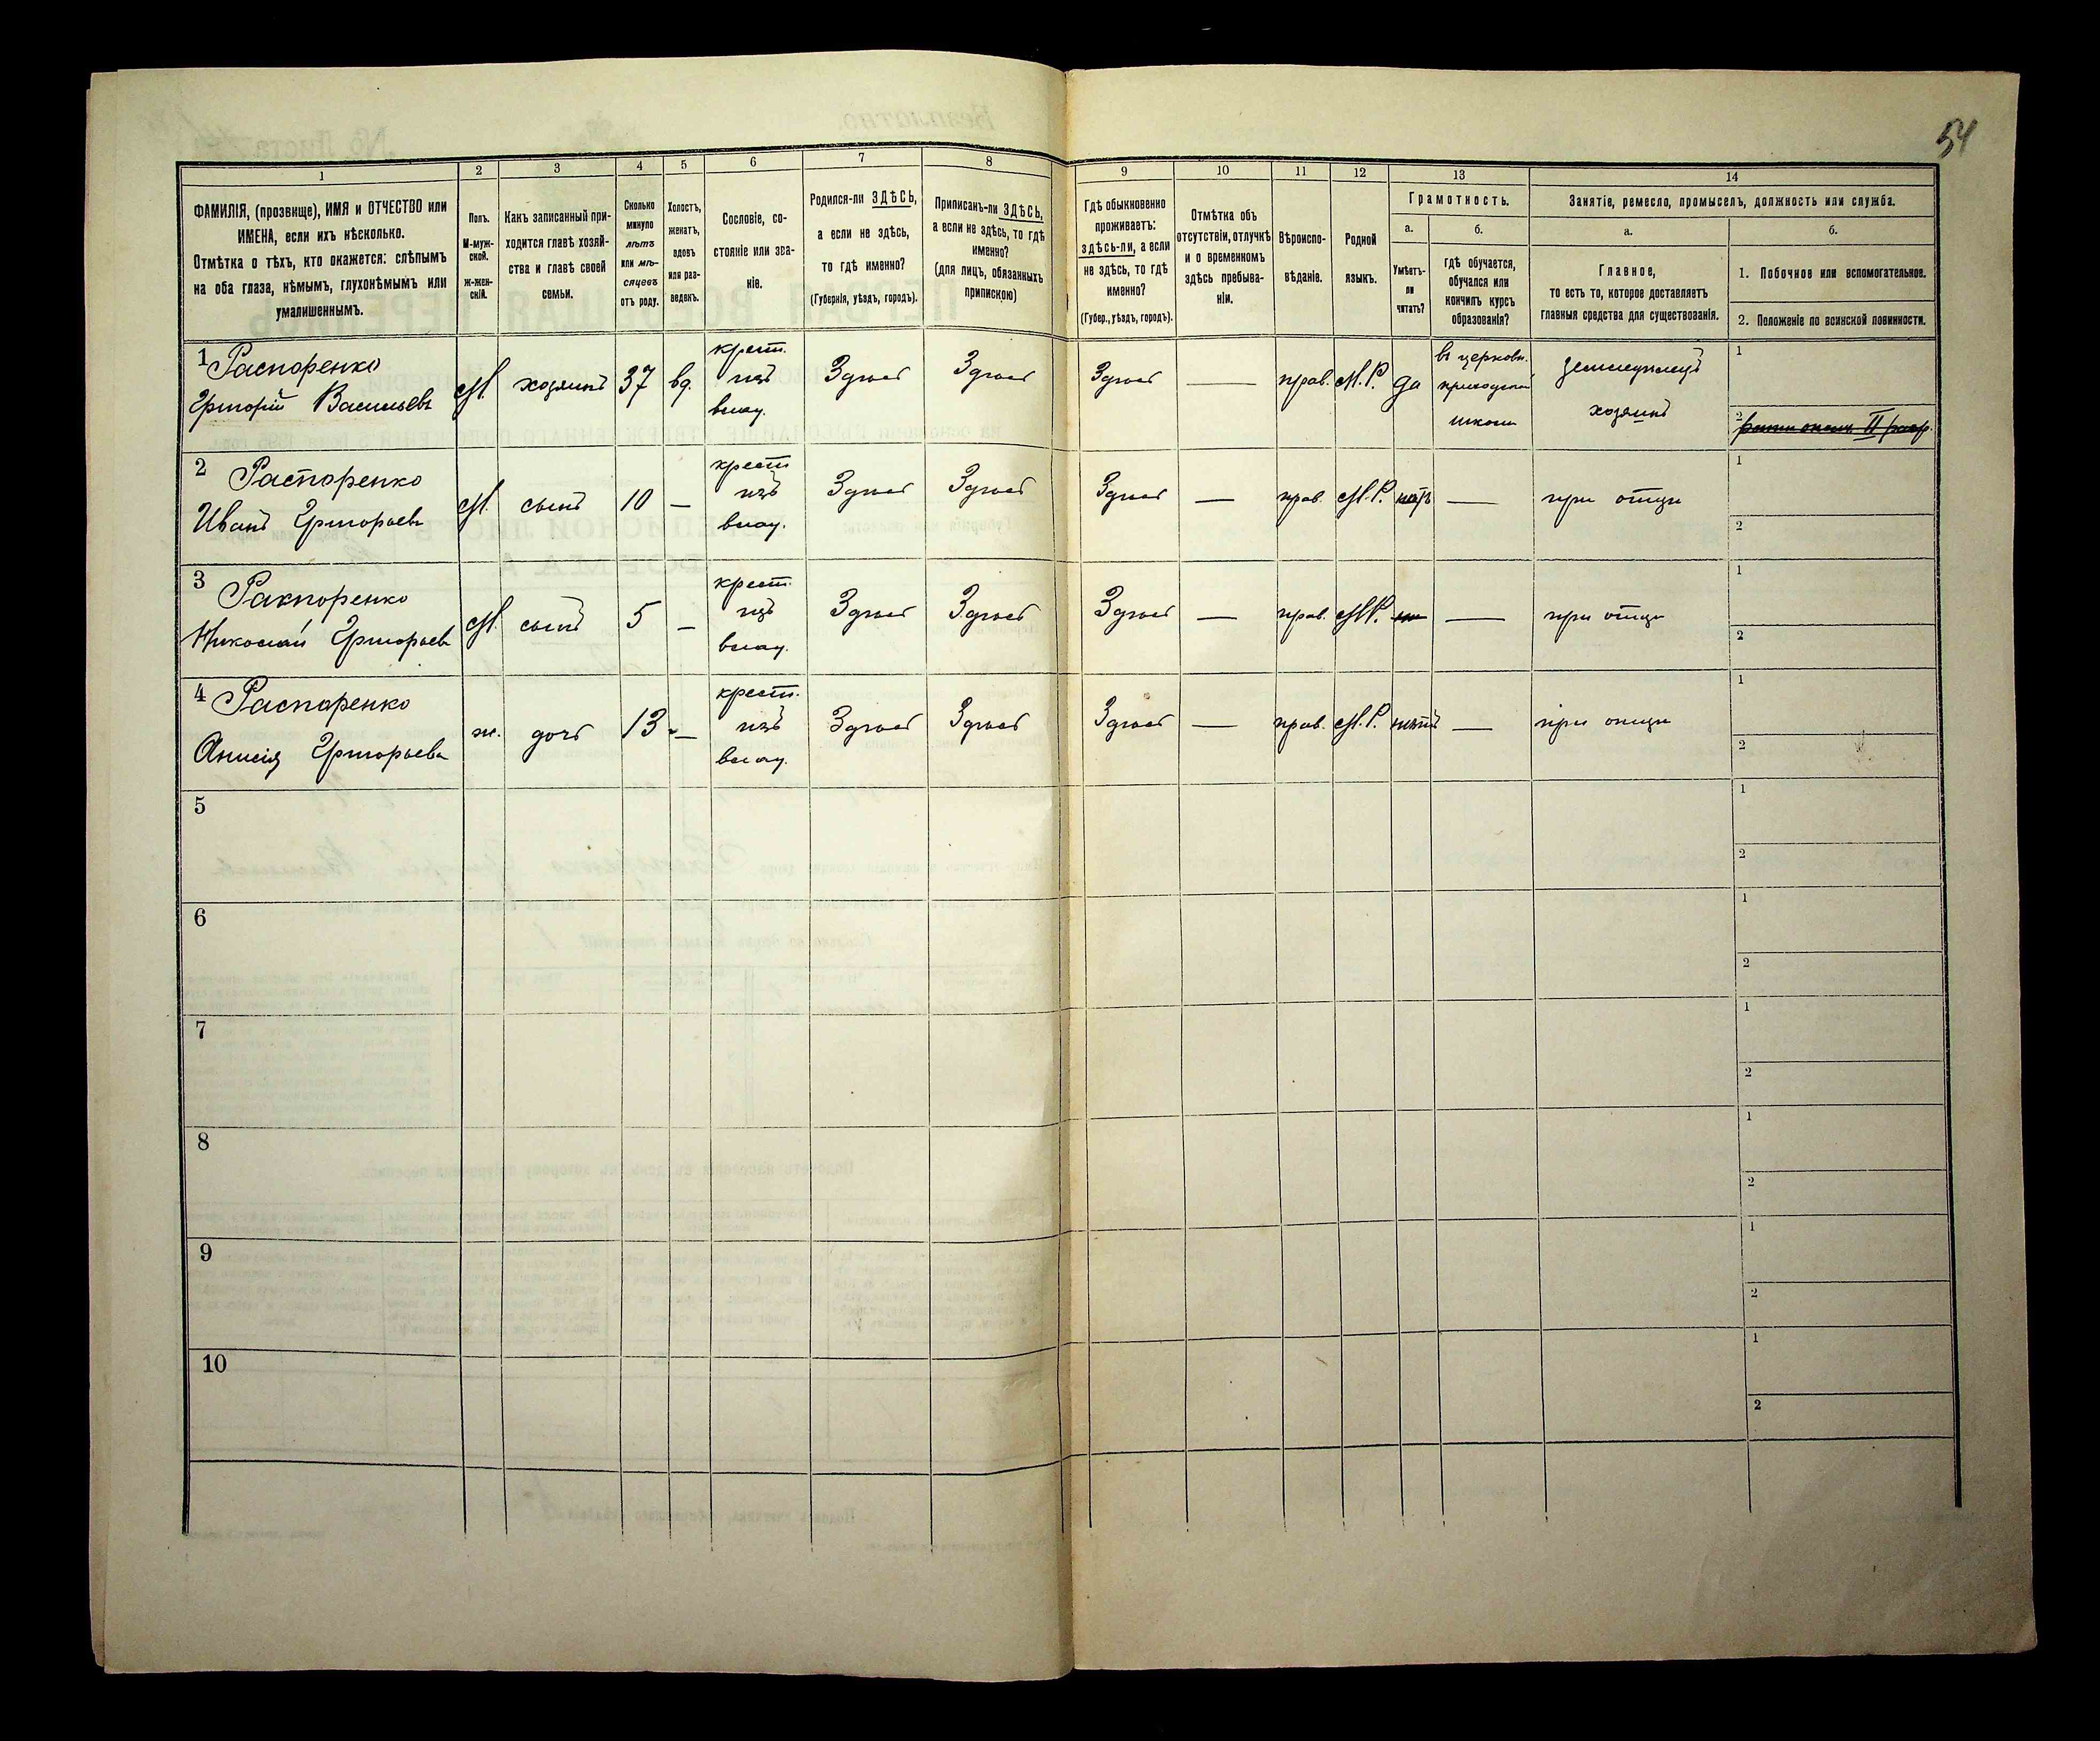 54
1 2 3 4 5 6 7 8 9 10 11 12 13 14
ФАМИЛІЯ, (прозвище), ИМЯ и ОТЧЕСТВО или
ИМЕНА, если ихъ нѣсколько.
Отмѣтка о тѣхъ, кто окажется: слѣпымъ
на оба глаза, нѣмымъ, глухонѣмымъ или
умалишеннымъ.
Полъ.
М-муж-
ской.
ж-жен-
скій.
Какъ записанный при-
ходится главѣ хозяй-
ства и главѣ своей
семьи.
Сколько
минуло
лѣтъ
или мѣ-
сяцевъ
отъ роду.
Холостъ,
женатъ,
вдовъ
или раз-
веденъ.
Сословіе, со-
стояніе или зва-
ніе.
Родился-ли ЗДѢСЬ,
а если не здѣсь,
то гдѣ именно?
(Губернія, уѣздъ, городъ).
Приписанъ-ли ЗДѢСЬ,
а если не здѣсь, то гдѣ
именно?
(для лицъ, обязанныхъ
припискою)
Гдѣ обыкновенно
проживаетъ:
здѣсь-ли, а если
не здѣсь, то гдѣ
именно?
(Губер., уѣздъ, городъ).
Отмѣтка объ
отсутствіи, отлучкѣ
и о временномъ
здѣсь пребыва-
ніи.
Вѣроиспо-
вѣданіе.
Родной
языкъ.
Грамотность.
а.
Умѣетъ-
ли
читать?
б.
гдѣ обучается,
обучался или
кончилъ курсъ
образованія?
Занятіе, ремесло, промыселъ, должность или служба.
а.
Главное,
то есть то, которое доставляетъ
главныя средства для существованія.
б.
1. Побочное или вспомогательное.
2. Положеніе по воинской повинности.
1 Распоренко
Григорій Васильевъ
М. хозяинъ 37 вд.
крест.
изъ
влад.
Здѣсь Здѣсь Здѣсь — прав. М.Р. да
въ церковн.
приходской
школѣ
земледѣлецъ
хозяинъ
1
2
II разр.
2 Распоренко
Иванъ Григорьевъ
М. сынъ 10 —
крест
изъ
влад.
Здѣсь Здѣсь Здѣсь — прав. М.Р. нѣтъ — при отцѣ
1
2
3 Распоренко
Николай Григорьевъ
М. сынъ 5 —
крест.
изъ
влад.
Здѣсь Здѣсь Здѣсь — прав. М.Р. — при отцѣ
1
2
4 Распоренко
Анисія Григорьева
ж. дочь 13 —
крест.
изъ
влад.
Здѣсь Здѣсь Здѣсь — прав. М.Р. нѣтъ — при отцѣ
1
2
5
1
2
6
1
2
7
1
2
8
1
2
9
1
2
10
1
2